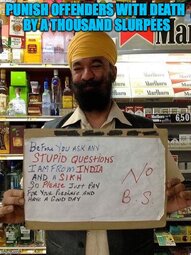 PUNISH OFFENDERS WITH DEATH
BY A THOUSAND SLURPEES
Marlboro
Mar
6.50
BeFore You ASK ANY
STUPID QUESTIONS
I AM FROM INDIA
AND A SIKH
So PleASe JUST PAY
FOR YOUR PURCHASE AND
HAVE A GOOD DAY
No
B S.